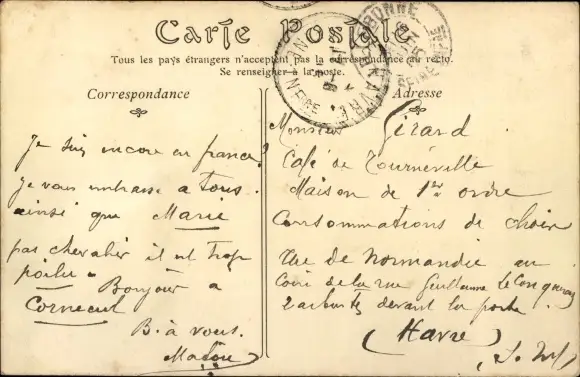 Carte Postale
Tous les pays étrangers n'acceptent pas la correspondance au recto.
Se renseigner à la poste.
Correspondance
Adresse
Je suis encore en france?
je vous embrasse a tous.
ainsi que Marie
pas chevalier il est trop
poilu. Bonjour a
Corneeut
B. à vous.
Monsieur Girard
Café de Tournéville
Maison de 1er ordre
Consommations de choix
Rue de Normandie au
Coin de la rue Guillaume le Conquerant
2 arbustes devant la porte
(Havre)